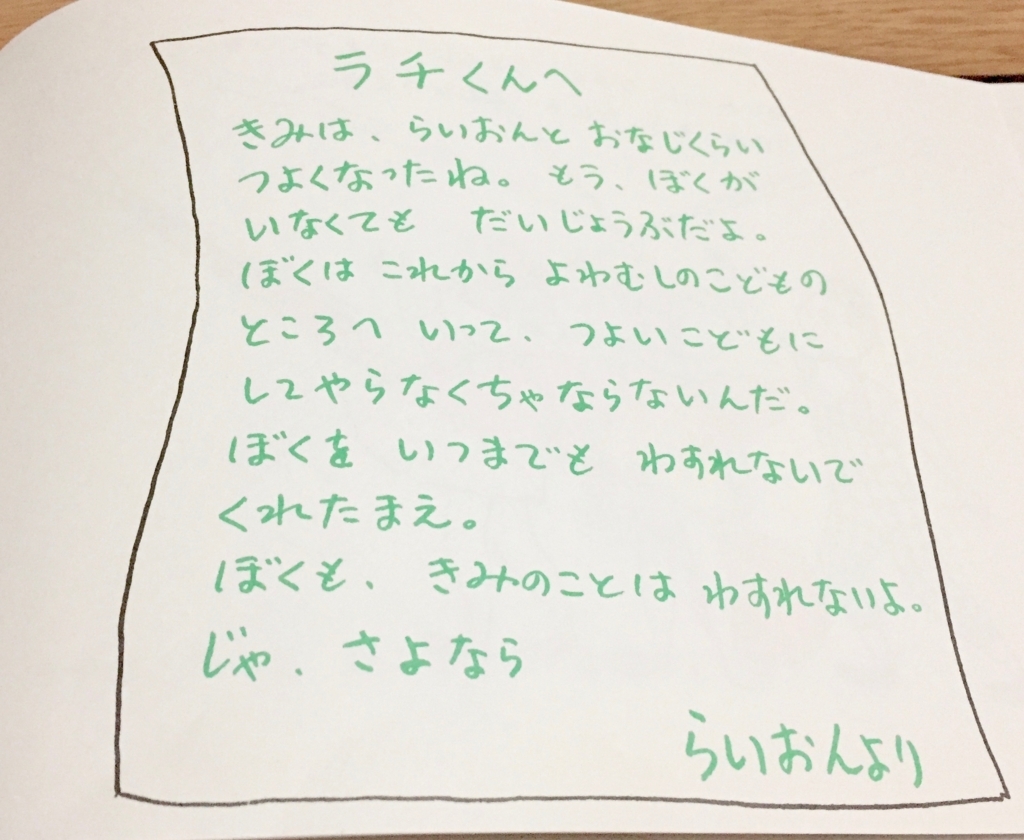 ラチくんへ
きみは、らいおんと おなじくらい
つよくなったね。 もう、ぼくが
いなくても だいじょうぶだよ。
ぼくは これから よわむしのこどもの
ところへ いって、 つよいこどもに
してやらなくちゃならないんだ。
ぼくを いつまでも わすれないで
くれたまえ。
ぼくも、 きみのことは わすれないよ。
じゃ、さよなら
らいおんより